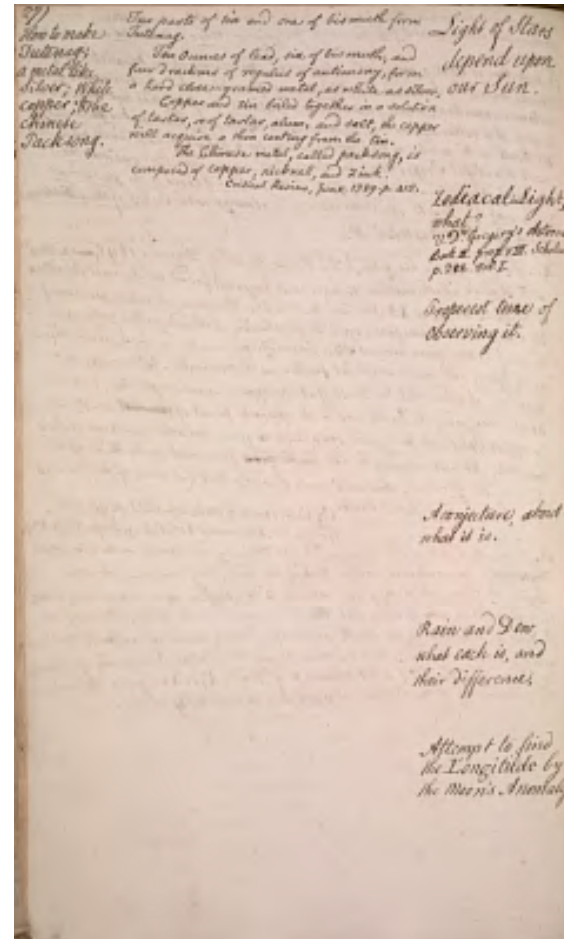 27)
How to make
Tuttnag;
a metal like
Silver; White
copper; & the
Chinese
Packsong.
Two parts of tin and one of bismuth form
Tuttnag.
Ten Ounces of lead, six of bismuth, and
four drachms of regulus of antimony, form
a hard close-grained metal, as white as silver.
Copper and tin boiled together in a solution
of tartar, alum, and salt, the copper
will acquire a thin coating from the tin.
The Chinese metal, called packsong, is
composed of copper, nickel, and Zink.
Critical Review, June 1789. p.
Light of Stars
depend upon
our Sun.
Zodiacal Light,
what?
Gregory's
Book II. prop. VIII.
p. Vol I.
Properest time of
observing it.
A conjecture, about
what it is.
Rain and Dew
what each is, and
their difference,
Attempt to find
the Longitude by
the Moon's Anomaly